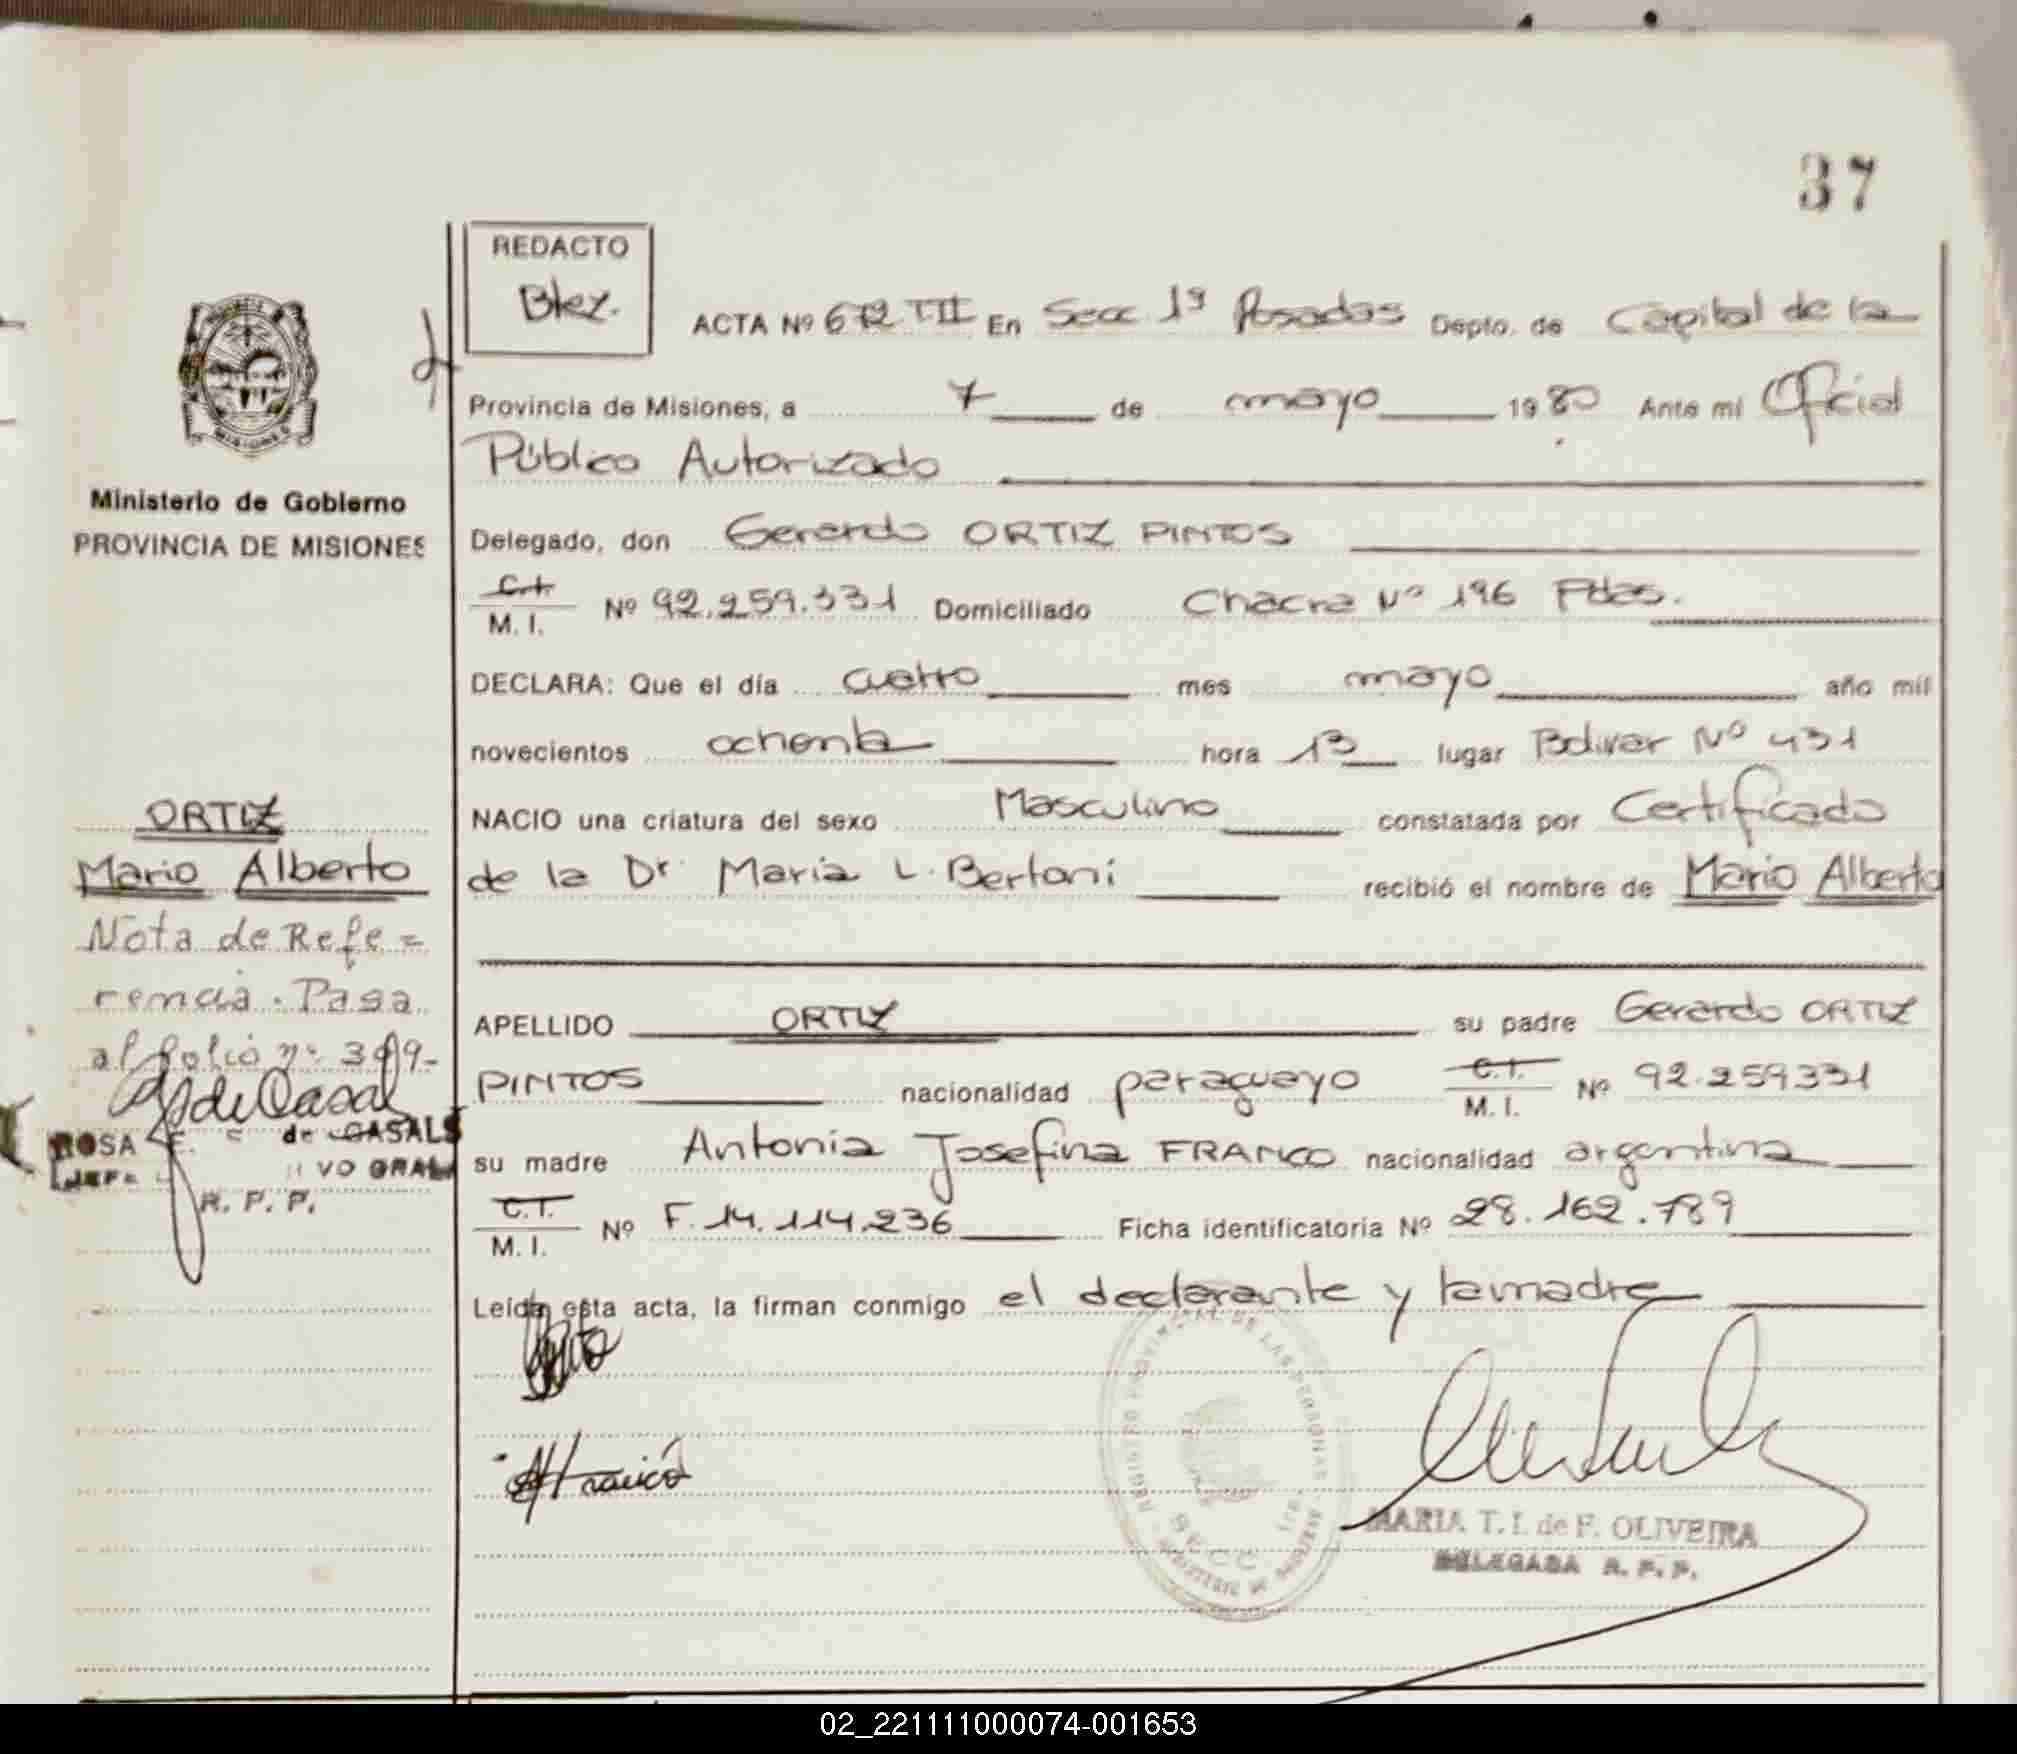 37
REDACTO
Blez.
ACTA Nº 672 TII En Secc 1ª Posadas Depto. de Capital de la
Provincia de Misiones, a 7 de mayo 1980 Ante mi Oficial
Público Autorizado
Delegado, don Gerardo ORTIZ PINTOS
C.I.
M. I. Nº 92.259.331 Domiciliado Chacra Nº 196 Pdas.
DECLARA: Que el día cuatro mes mayo año mil
novecientos ochenta hora 13 lugar Bolivar Nº 431
NACIO una criatura del sexo Masculino constatada por Certificado
de la Dr. Maria L. Bertoni recibió el nombre de Mario Alberto
APELLIDO ORTIZ su padre Gerardo ORTIZ
PINTOS nacionalidad paraguayo C.I. M. I. Nº 92.259331
su madre Antonia Josefina FRANCO nacionalidad argentina
C.I.
M. I. Nº F. 14.114.236 Ficha identificatoria Nº 28.162.789
Leída esta acta, la firman conmigo el declarante y la madre
REGISTRO PROVINCIAL DE LAS PERSONAS
SECC 1ra.
MARIA T. I. de F. OLIVEIRA
DELEGADA R. P. P.
PROVINCIA
MISIONES
Ministerio de Gobierno
PROVINCIA DE MISIONES
ORTIZ
Mario Alberto
Nota de Refe=
rencia. Pasa
al folio nº 399-
ROSA E. de CASALS
JEFA VO GRAL
R. P. P.
02_221111000074-001653